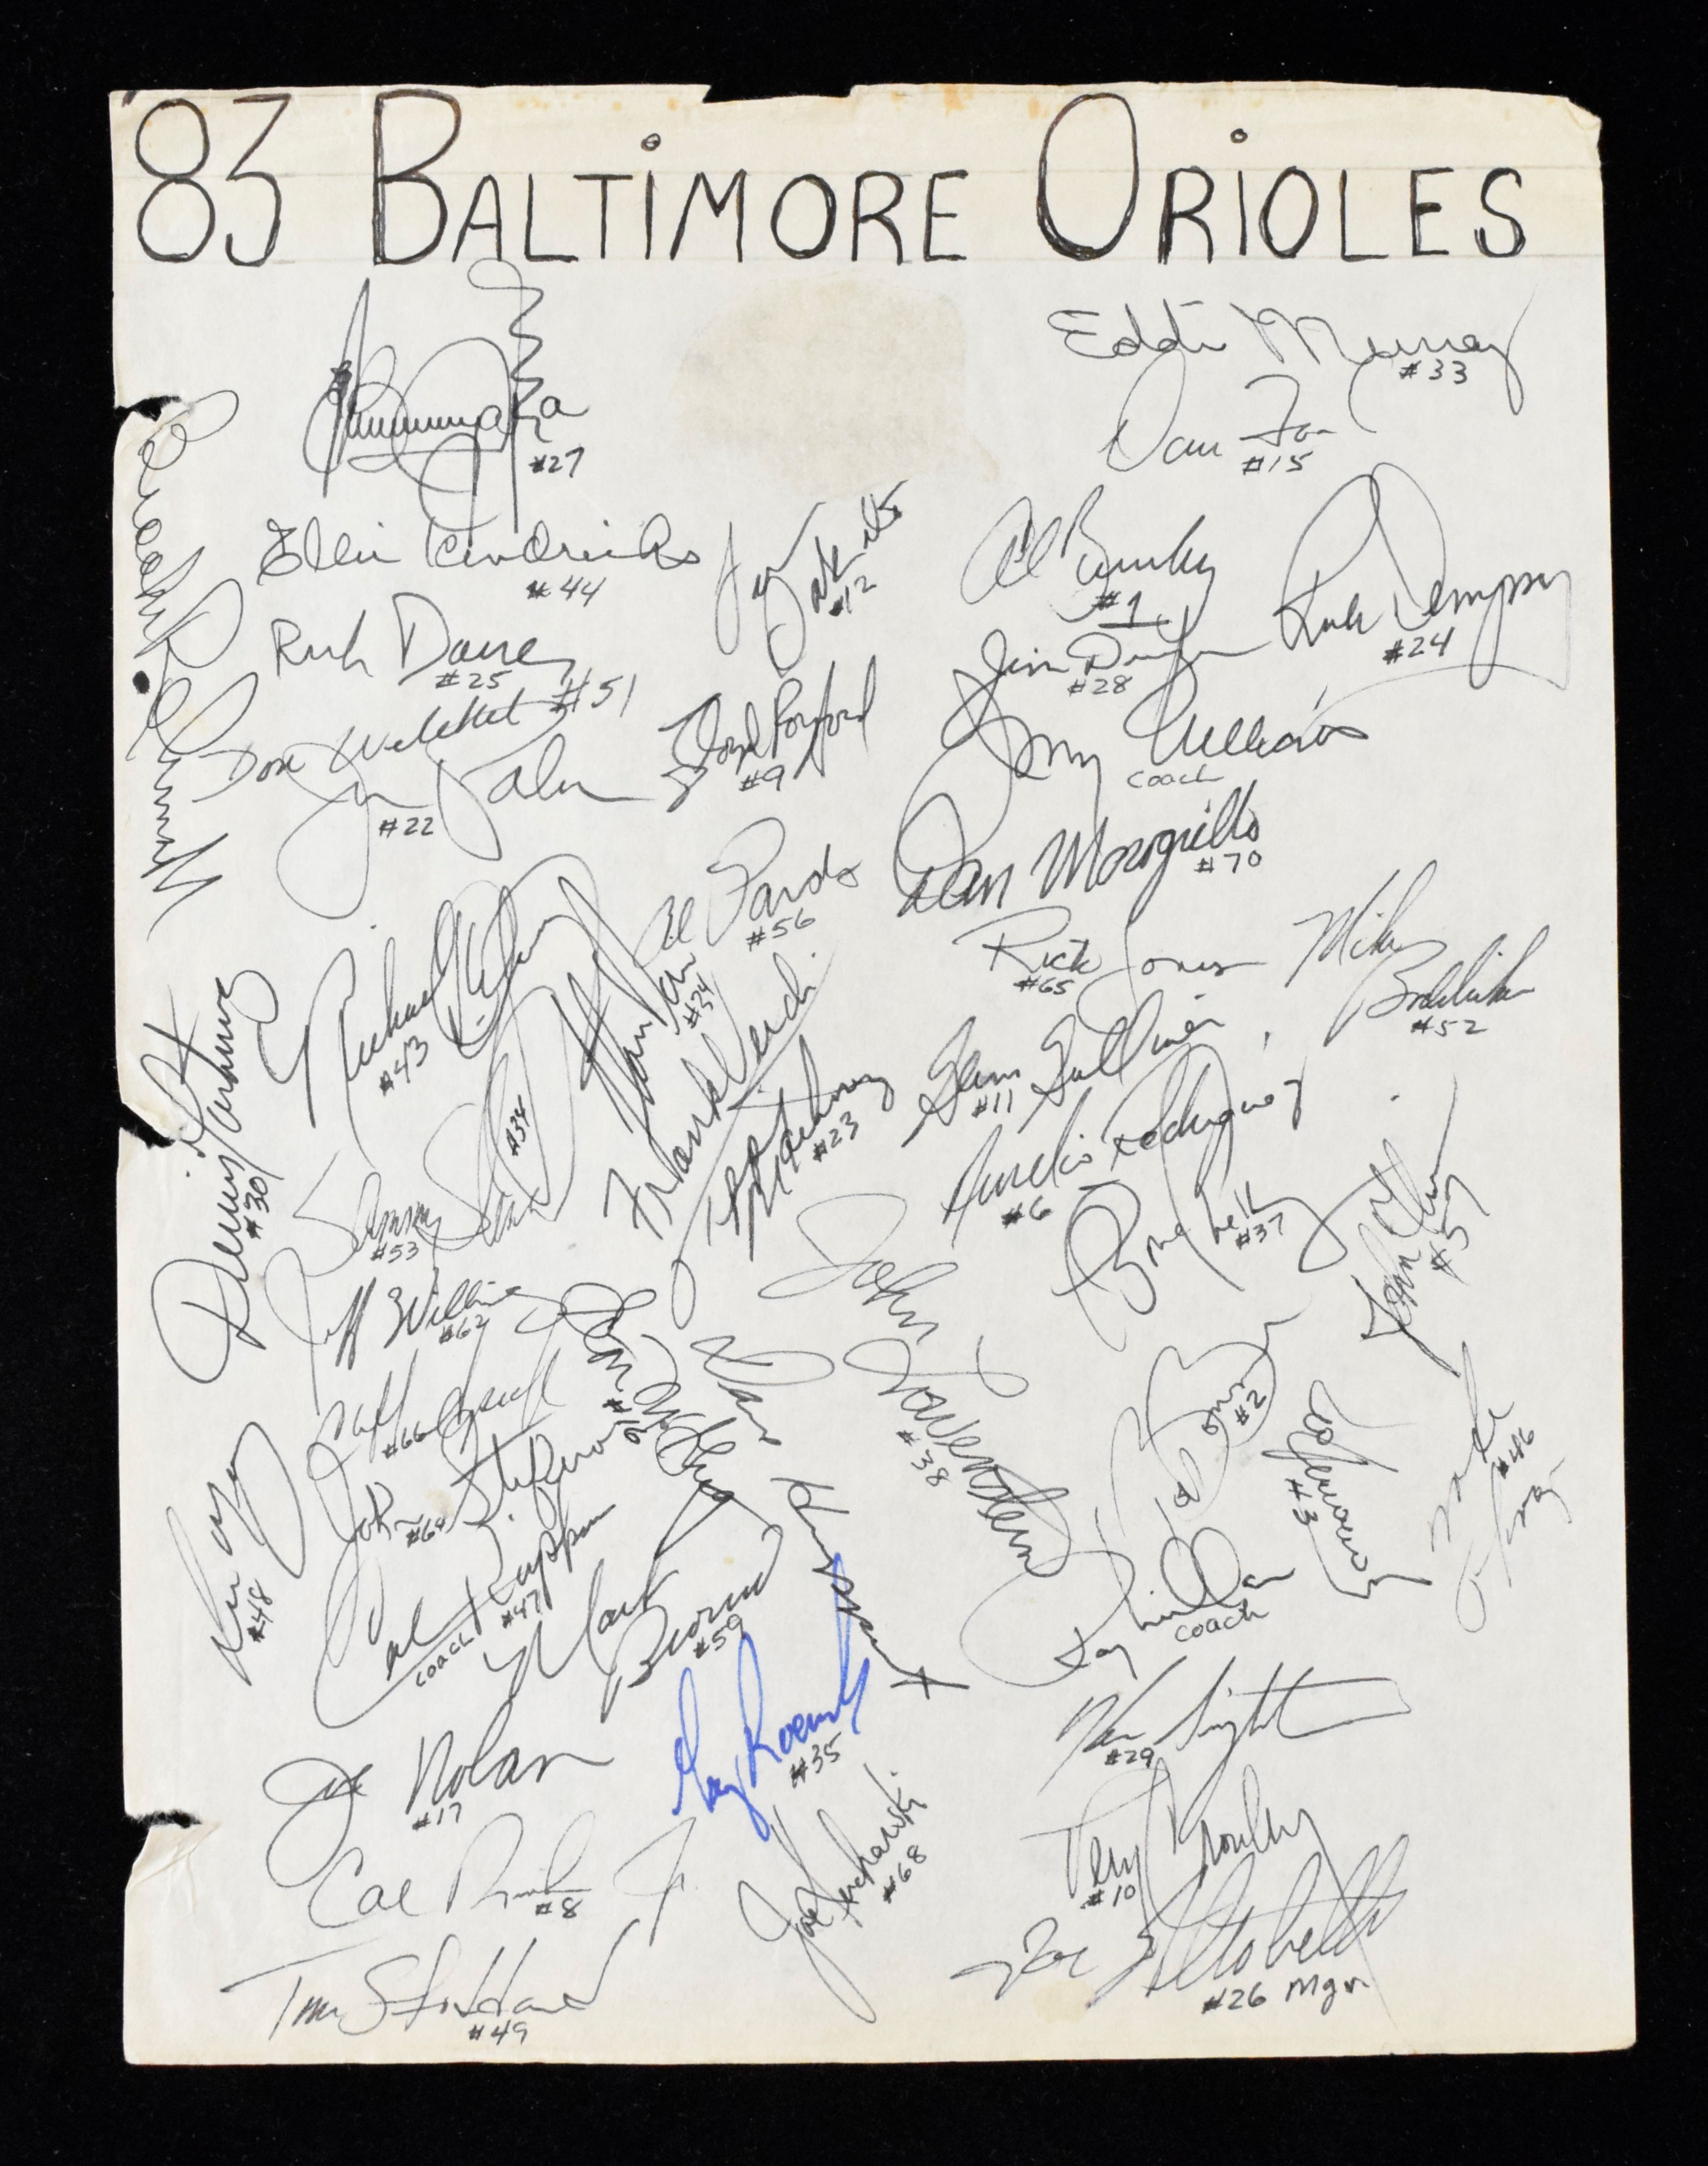 83 BALTIMORE ORIOLES
Eddie Murray
#33
Dan Ford
#15
#27
Ellie Hendricks
#44
#12
Al Bumbry
#1
Rick Dempsey
#24
Rich Dauer
#25
Jim Dwyer
#28
Don Welchel #51
Floyd Rayford
#9
Jimmy Williams
coach
Jim Palmer
#22
Dan Morogiello
#70
Al Pardo
#56
Rick Jones
#65
Mike Boddicker
#52
#43
#34
Allan Ramirez
Frank Verdi
Dennis Martinez
#30
Storm Davis
#34
Sammy Stewart
#53
Tippy Martinez
#23
Glenn Gulliver
#11
Aurelio Rodriguez
#6
#37
John Shelby
#5
Jeff Williams
#62
John Lowenstein
#38
#66
#16
Bobby Bonner
#2
#3
Mike Flanagan
#46
John Stefero
#64
Dave Huppert
#48
Cal Ripken
coach #47
Mark Brown
#59
Ray Miller
coach
Gary Roenicke
#35
Ken Singleton
#29
Joe Nolan
#17
Joe Kucharski
#68
Terry Crowley
#10
Cal Ripken Jr
#8
Joe Altobelli
#26 Mgr
Tim Stoddard
#49